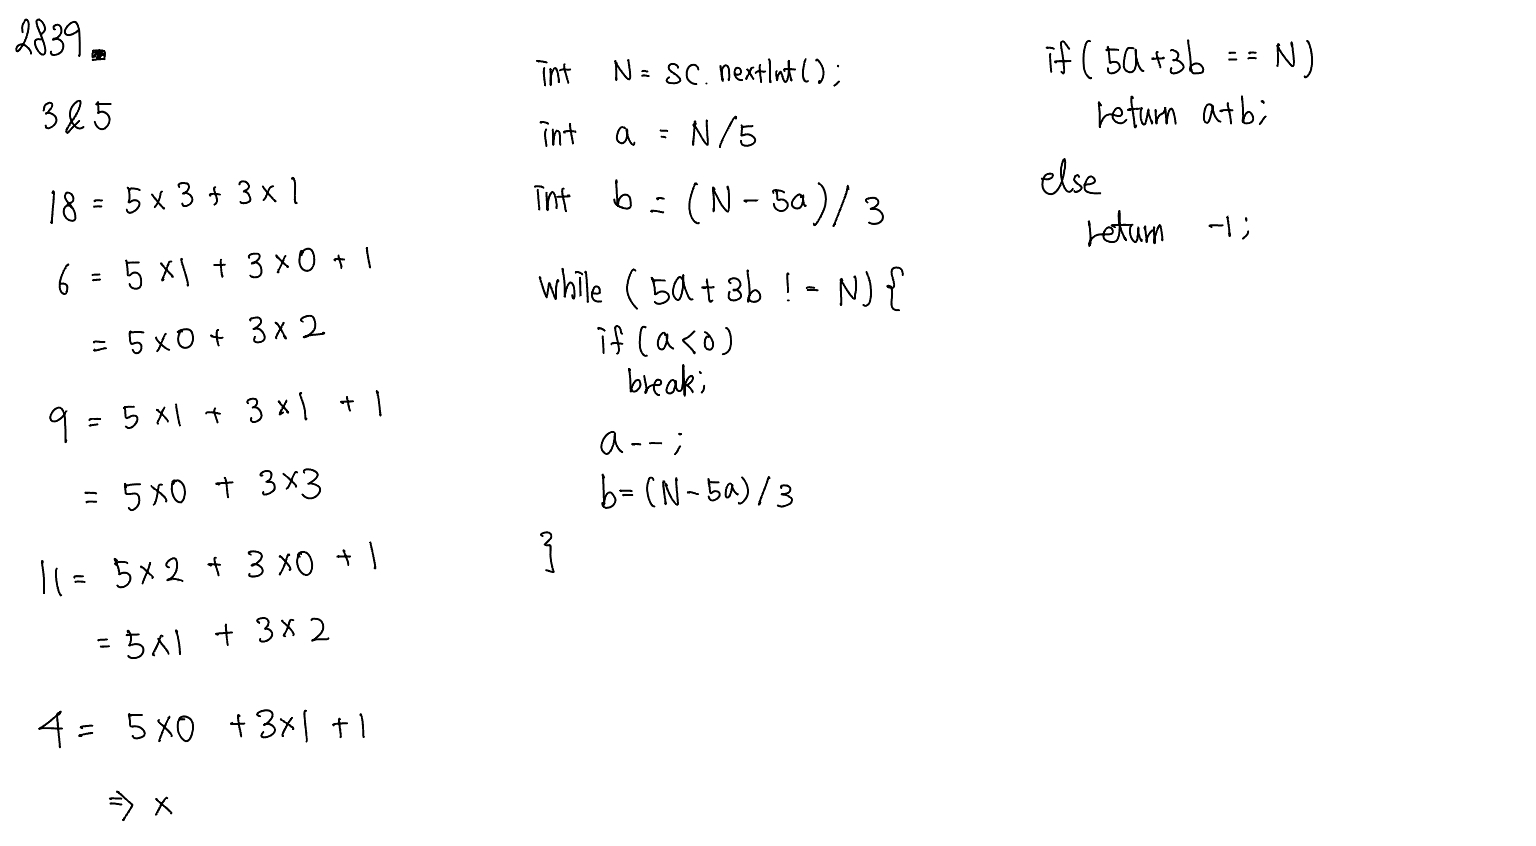 2839.
3&5
18 = 5 x 3 + 3 x 1
6 = 5 x 1 + 3 x 0 + 1
= 5 x 0 + 3 x 2
9 = 5 x 1 + 3 x 1 + 1
= 5 x 0 + 3 x 3
11 = 5 x 2 + 3 x 0 + 1
= 5 x 1 + 3 x 2
4 = 5 x 0 + 3 x 1 + 1
⇒ x
int N = sc.nextInt();
int a = N/5
int b = (N - 5a)/3
while (5a + 3b != N) {
if (a<0)
break;
a--;
b = (N - 5a)/3
}
if (5a+3b == N)
return a+b;
else
return -1;